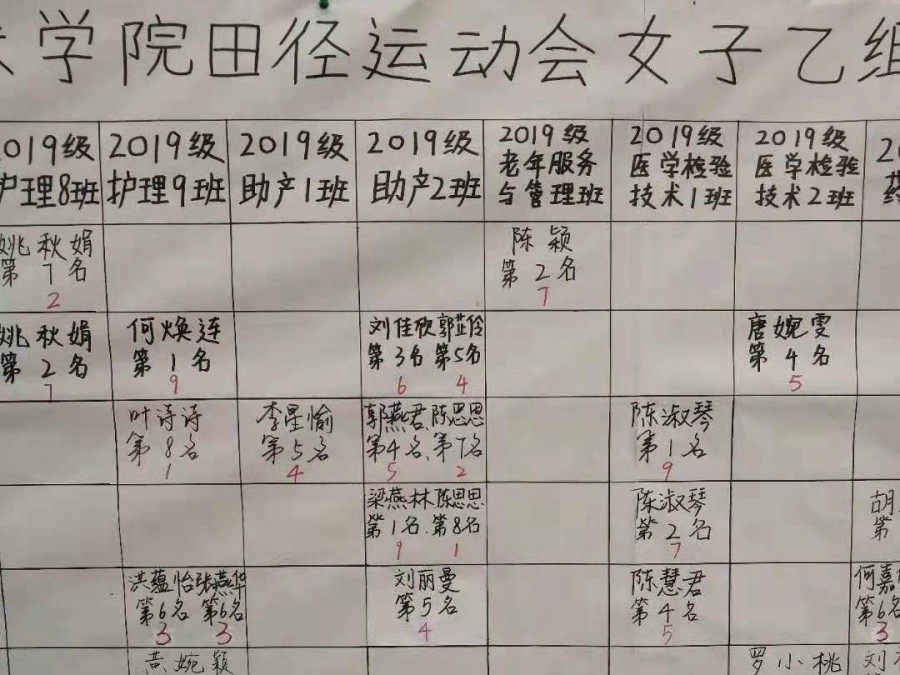 学院田径运动会女子乙组
2019级 2019级 2019级 2019级 2019级 2019级 2019级
护理8班 护理9班 助产1班 助产2班 老年服务 医学检验 医学检验
与管理班 技术1班 技术2班
姚秋娟 陈颖
第7名 第2名
2 7
姚秋娟 何焕连 刘佳欣 郭芷伶 唐婉雯
第2名 第1名 第3名 第5名 第4名
7 9 6 4 5
叶诗诗 李星愉 郭燕君、陈思思 陈淑琴
第8名 第5名 第4名、第7名 第1名
1 4 5 2 9
梁燕林 陈思思 陈淑琴 胡
第1名、第8名 第2名 第
9 1 7
洪蕴怡 张燕华 刘丽曼 陈慧君 何嘉
第6名 第6名 第5名 第4名 第6名
3 3 4 5 3
黄婉颖 罗小桃 刘